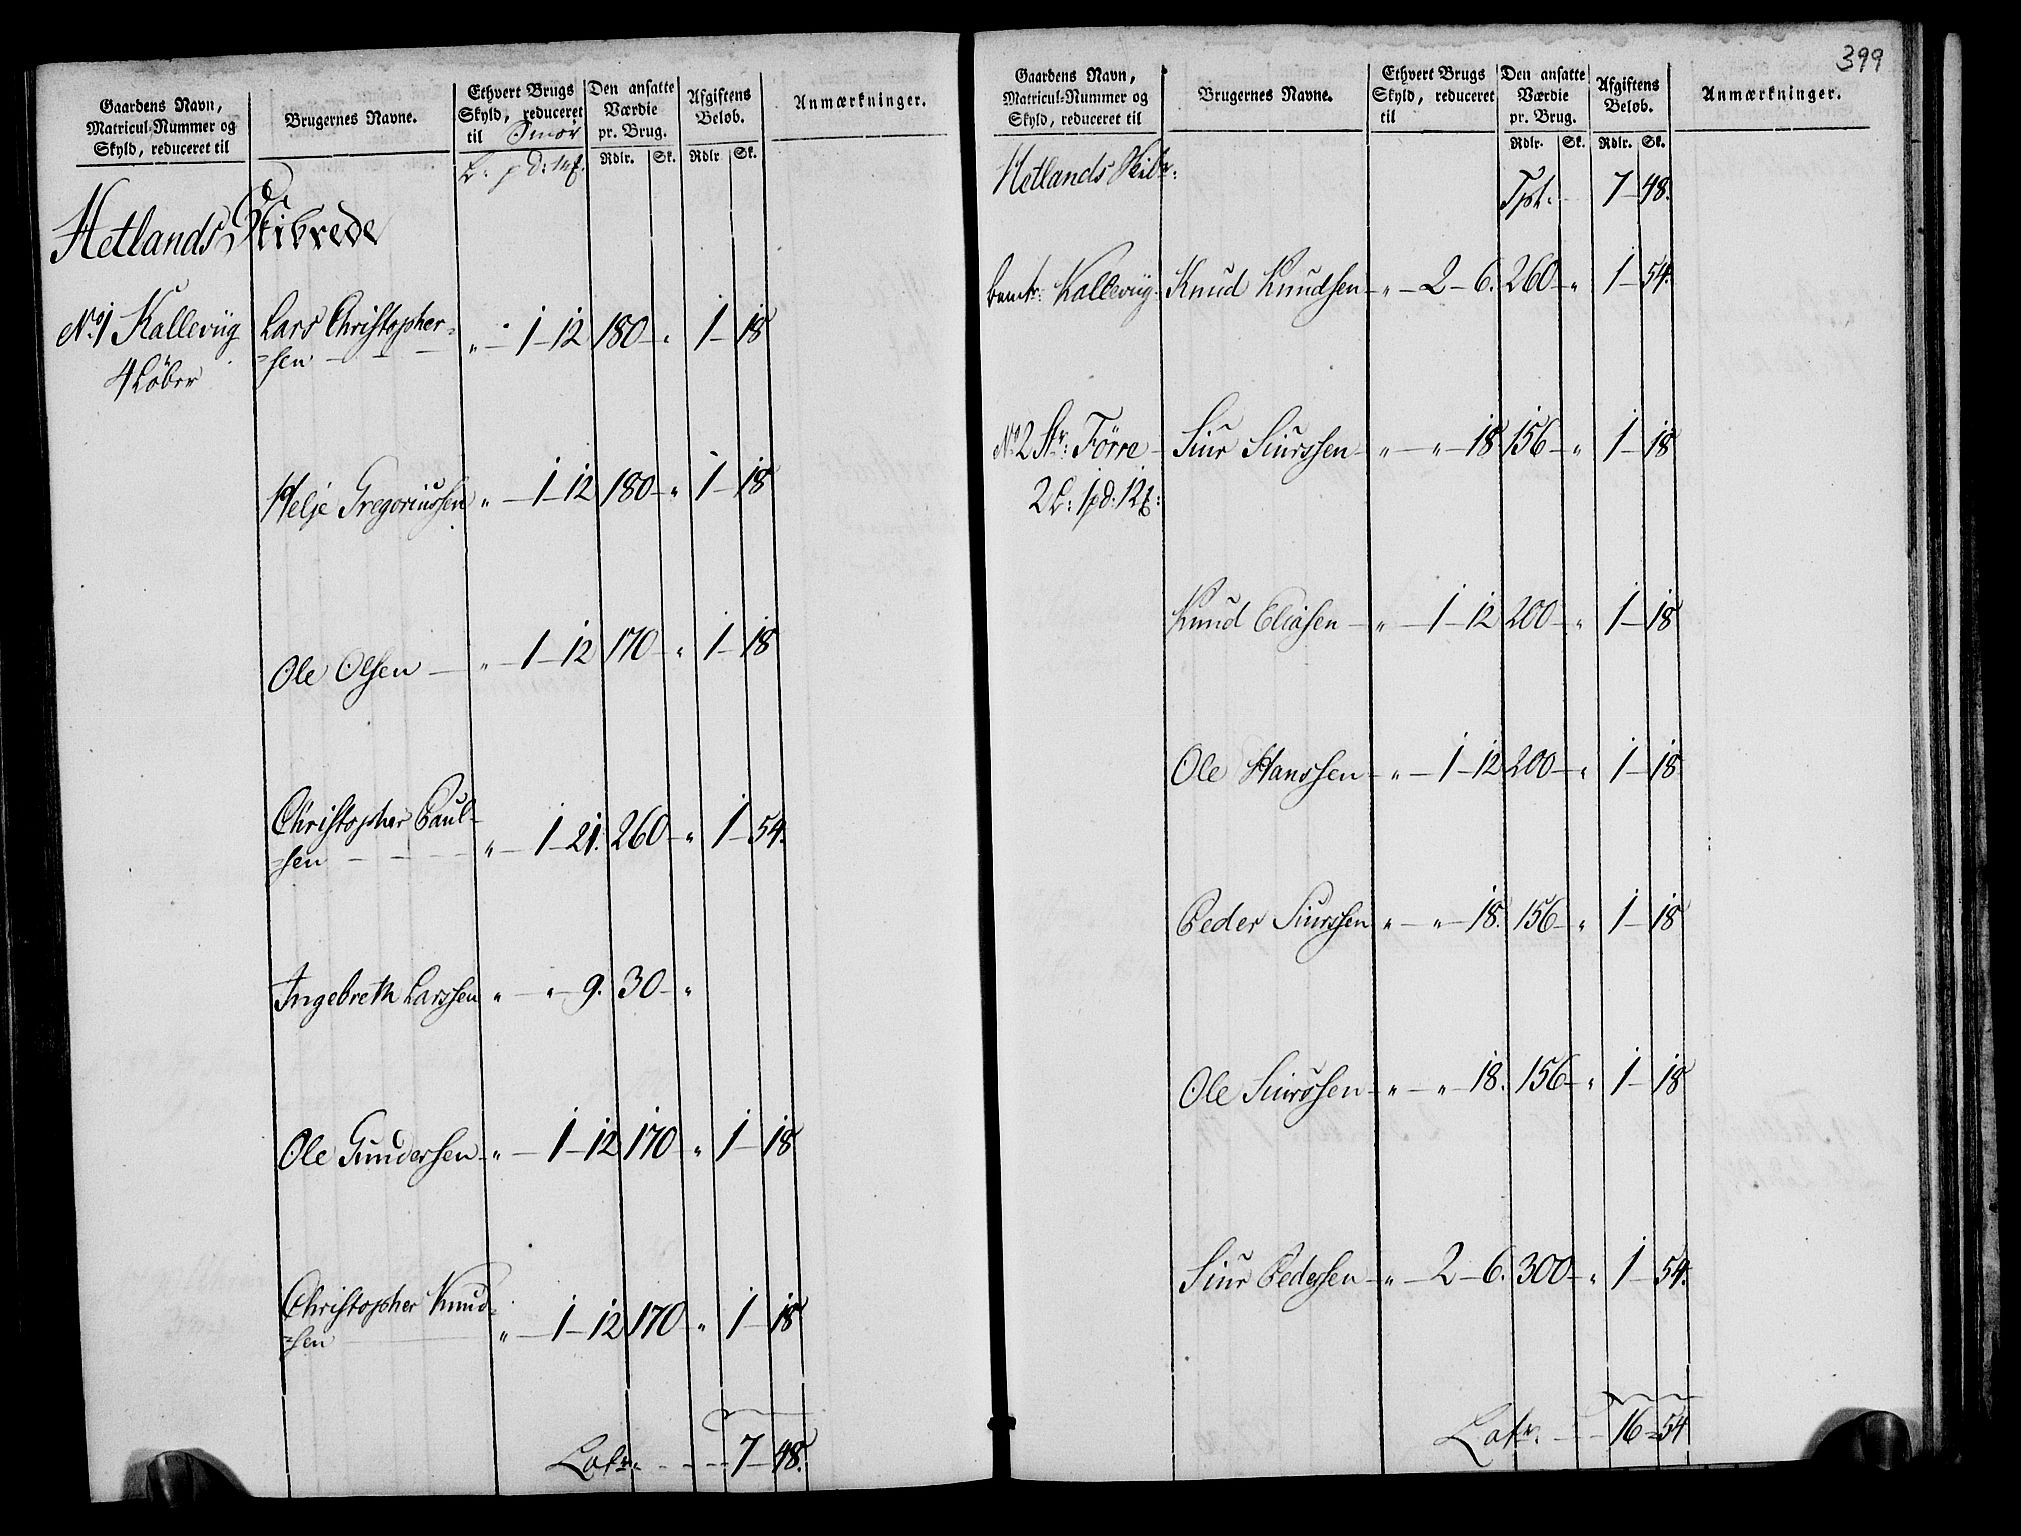 Gaardens Navn,
Matricul-Nummer og
Skyld, reduceret til
Brugernes Navne.
Ethvert Brugs
Skyld, reduceret
til Smør
Den ansatte
Værdie
pr. Brug.
Afgiftens
Beløb.
Anmærkninger.
Rdlr. Sk. Rdlr Sk.
Hetlands Skibrede
No 1 Kalleviig Lars Christopher= „ 1 12 180 „ 1 18
4 Løber =sen
Helje Gregoriussen „ 1 12 180 „ 1 18
Ole Olsen „ 1 12 170 „ 1 18
Christopher Paul-
=sen „ 1 21. 260 „ 1 54.
Ingebreth Larssen „ „ 9. 30 „
Ole Gundersen „ 1 12 170 „ 1 18
Christopher Knud=
=sen „ 1 12 170 „ 1 18
Latr. 7 48.
399
Gaardens Navn,
Matricul-Nummer og
Skyld, reduceret til
Brugernes Navne.
Ethvert Brugs
Skyld, reduceret
til
Den ansatte
Værdie
pr. Brug.
Afgiftens
Beløb.
Anmærkninger.
Rdlr. Sk. Rdlr. Sk.
Hetlands Skibr:
Tpt. 7 48.
Kallevüg Knud Knudsen „ 2 6. 260 „ 1 54.
No 2 Str: Førre Siur Siurssen „ „ 18 156 „ 1 18
2 L: 1 pd. 12
Knud Eliasen „ 1 12 200 „ 1 18
Ole Hanssen „ 1 12 200 „ 1 18
Peder Siurssen „ „ 18. 156 „ 1 18
Ole Siurssen „ „ 18. 156 „ 1 18
Siur Pedersen „ 2 6. 300 „ 1 54.
Latr. 16 54